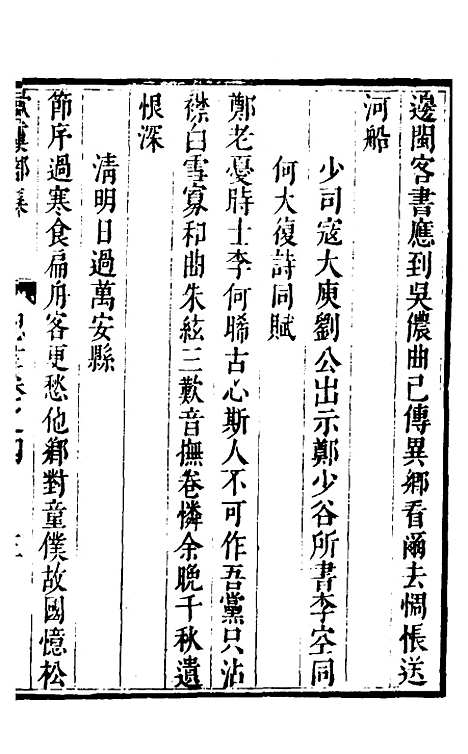 邊閩客書應到吳儂曲已傳異鄉看爾去惆悵送
河船
少司寇大庾劉公出示鄭少谷所書李空同
何大復詩同賦
鄭老憂時士李何晞古心斯人不可作吾黨只沾
襟白雪寡和曲朱絃三歎音撫卷憐余晚千秋遺
恨深
清明日過萬安縣
節序過寒食扁舟客更愁他鄉對童僕故國憶松